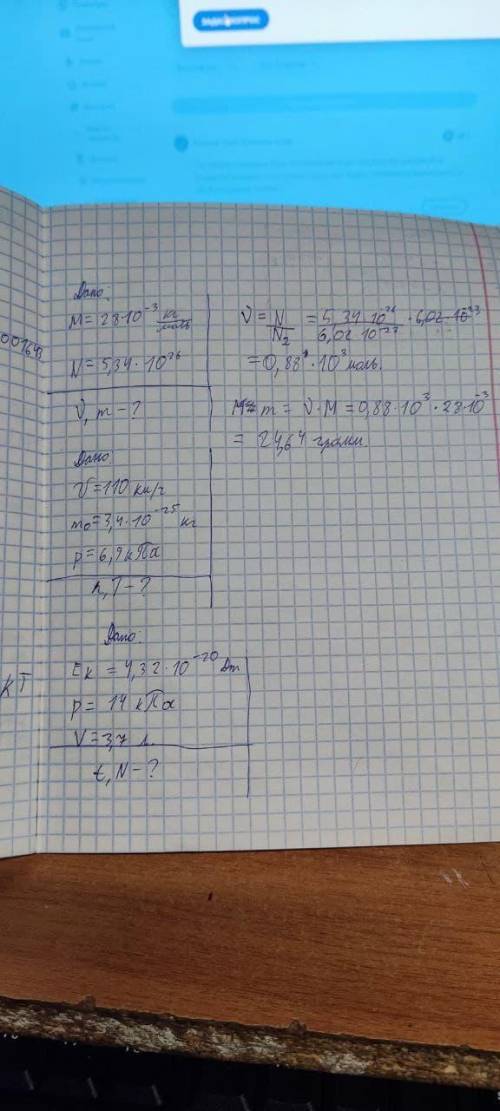 Дано:
M = 28·10⁻³ кг/моль
N = 5,34·10²⁶
ν, m - ?
ν = N/N₂ = 5,34·10²⁶/6,02·10⁻²³ · 6,02·10²³
= 0,88·10³ моль.
m = ν·M = 0,88·10³·28·10⁻³
= 24,64 грамм.
Дано:
V = 110 км/ч
m₀ = 3,4·10⁻²⁵ кг
p = 6,9 кПа
n, T - ?
Дано:
Eк = 4,32·10⁻²⁰ Дж
p = 14 кПа
V = 3,7 л.
t, N - ?
кТ